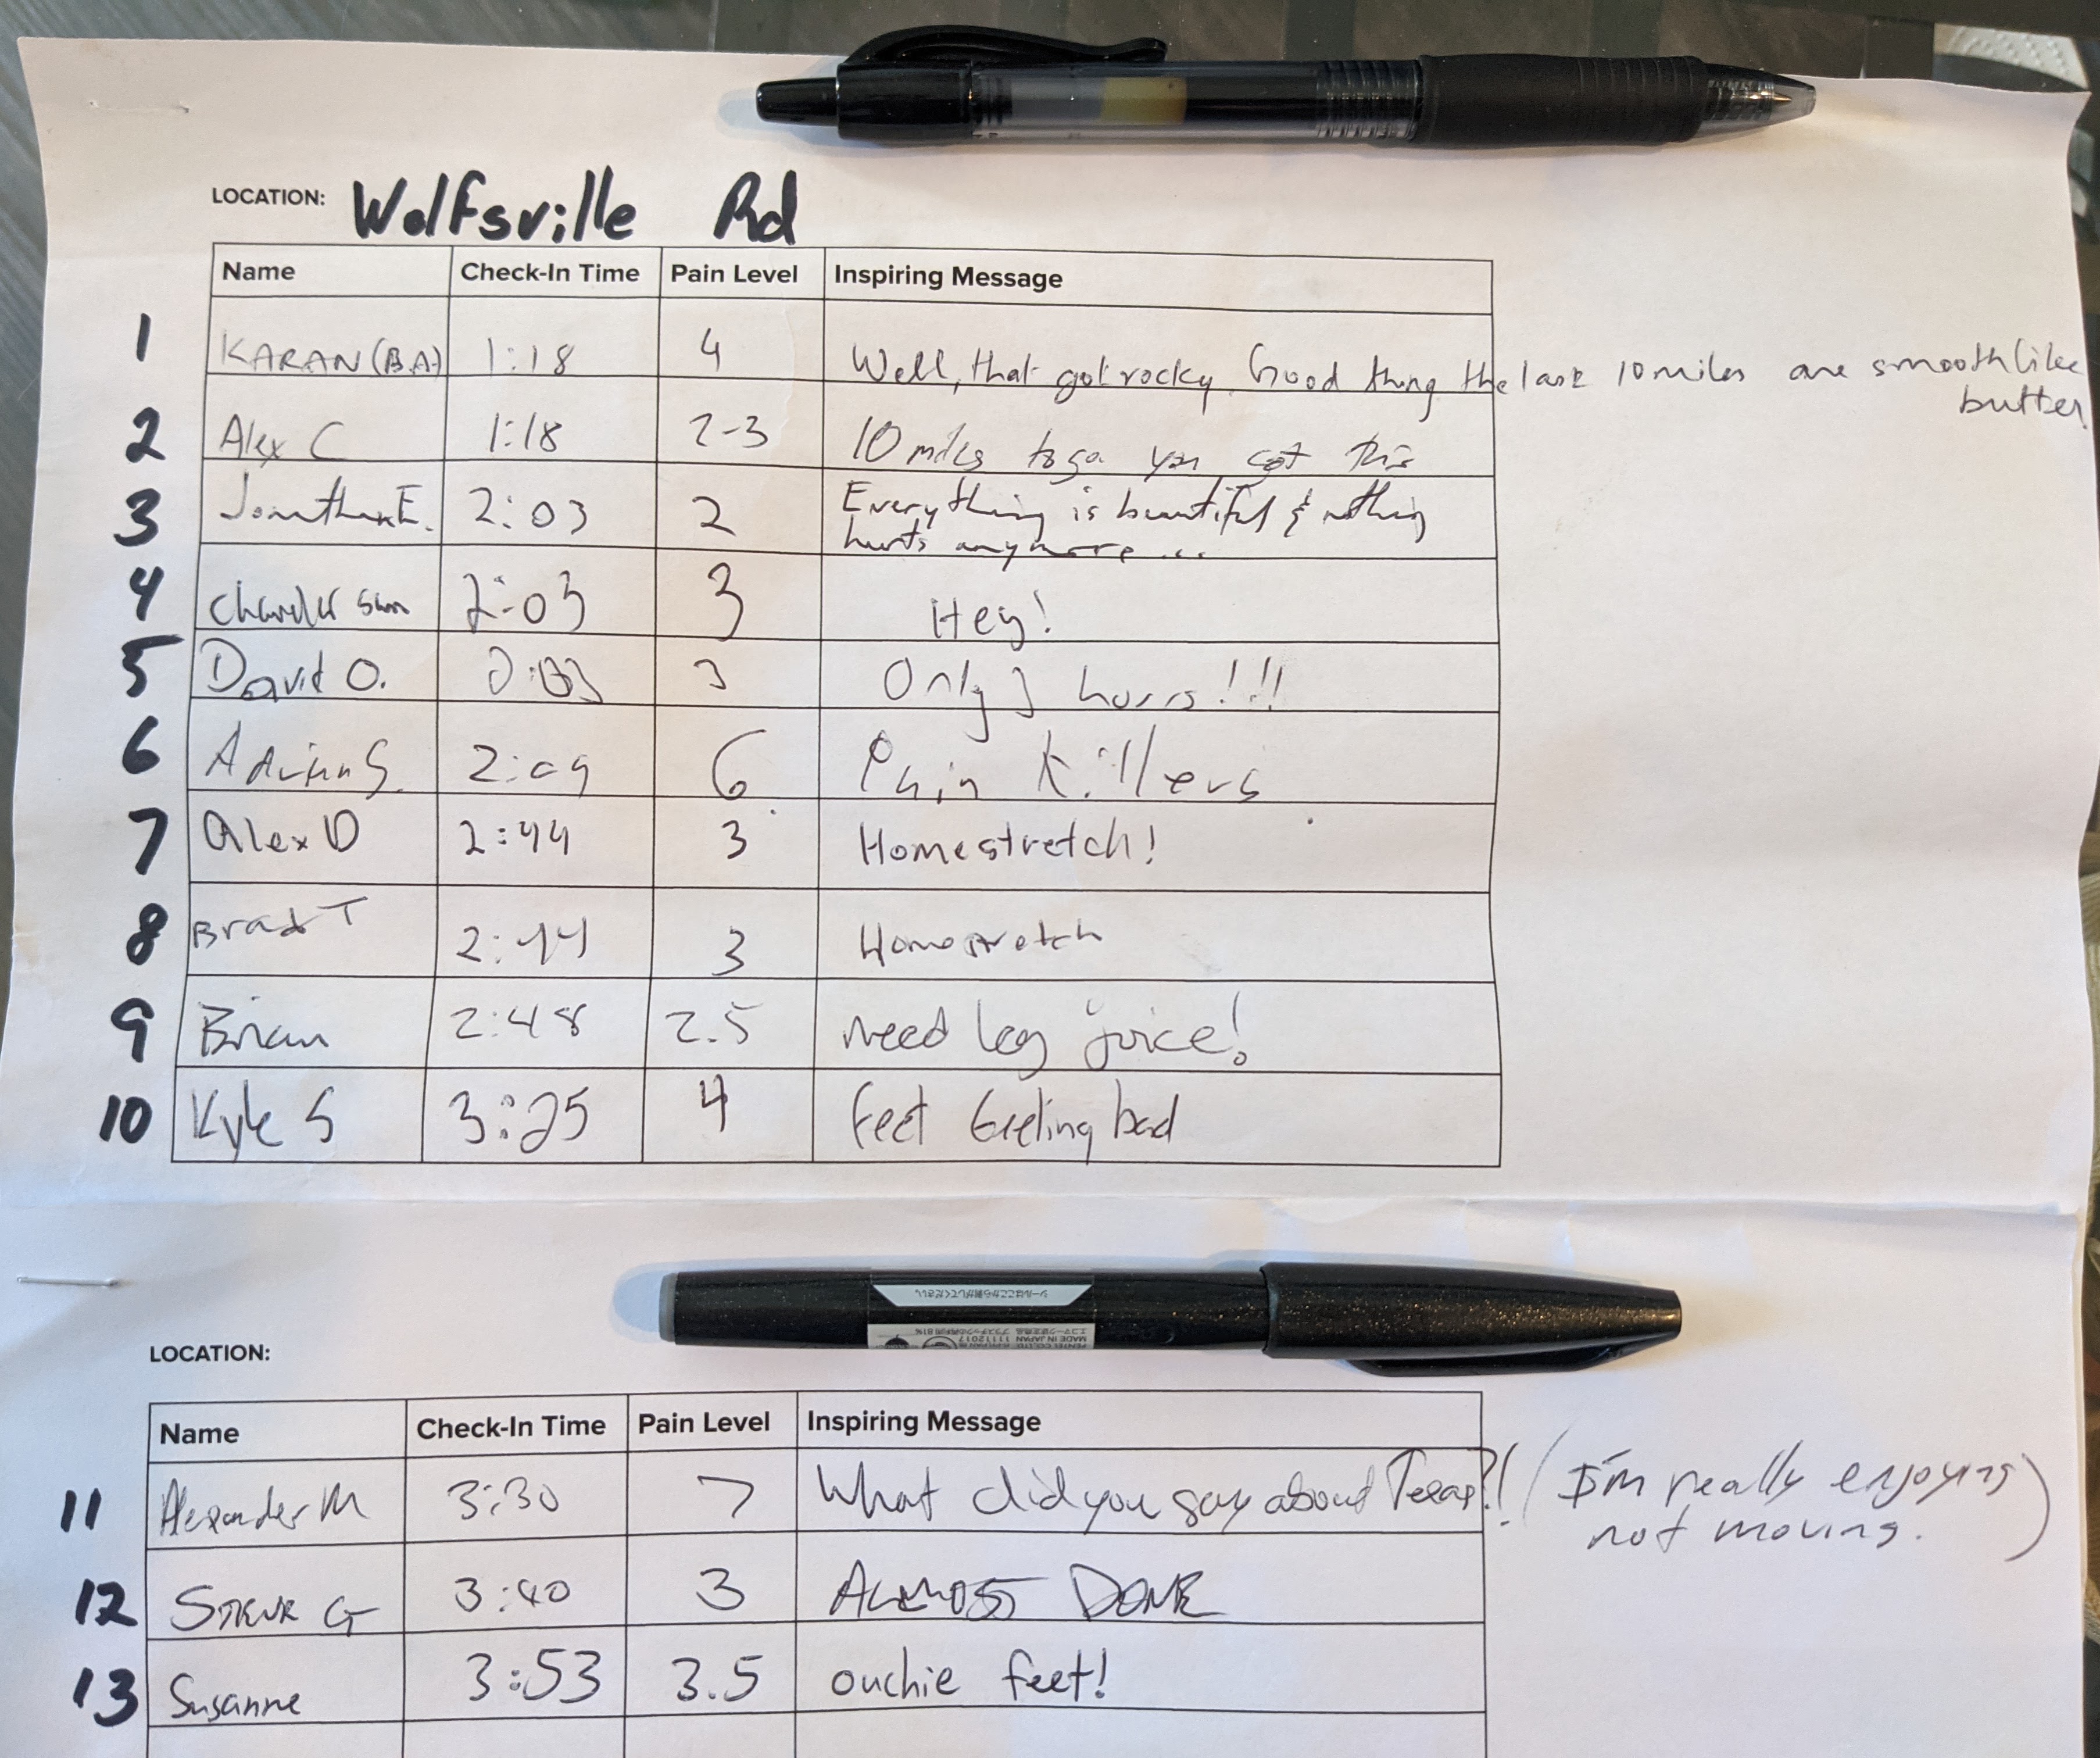 LOCATION: Wolfsville Rd
Name Check-In Time Pain Level Inspiring Message
1 KARAN (BA) 1:18 4 Well, that got rocky. Good thing the last 10 miles are smooth like
butter
2 Alex C 1:18 2-3 10 miles to go you got this
3 Jonathan E. 2:03 2 Everything is beautiful & nothing
hurts anymore...
4 Chandler Sun 2:03 3 Hey!
5 David O. 2:03 3 Only 3 hours!!!
6 Adrian S. 2:09 6 Pain Killers
7 Alex D 2:44 3 Homestretch!
8 Brad T 2:44 3 Homestretch
9 Brian 2:48 2.5 need leg juice!
10 Kyle S 3:25 4 Feet feeling bad
シールはここから剥がしてください
MADE IN JAPAN 11112017
LOCATION:
Name Check-In Time Pain Level Inspiring Message
11 Alexander M 3:30 7 What did you say about Texas?! (I'm really enjoying
not moving.)
12 STEVE G 3:40 3 ALMOST DONE
13 Susanne 3:53 3.5 ouchie feet!